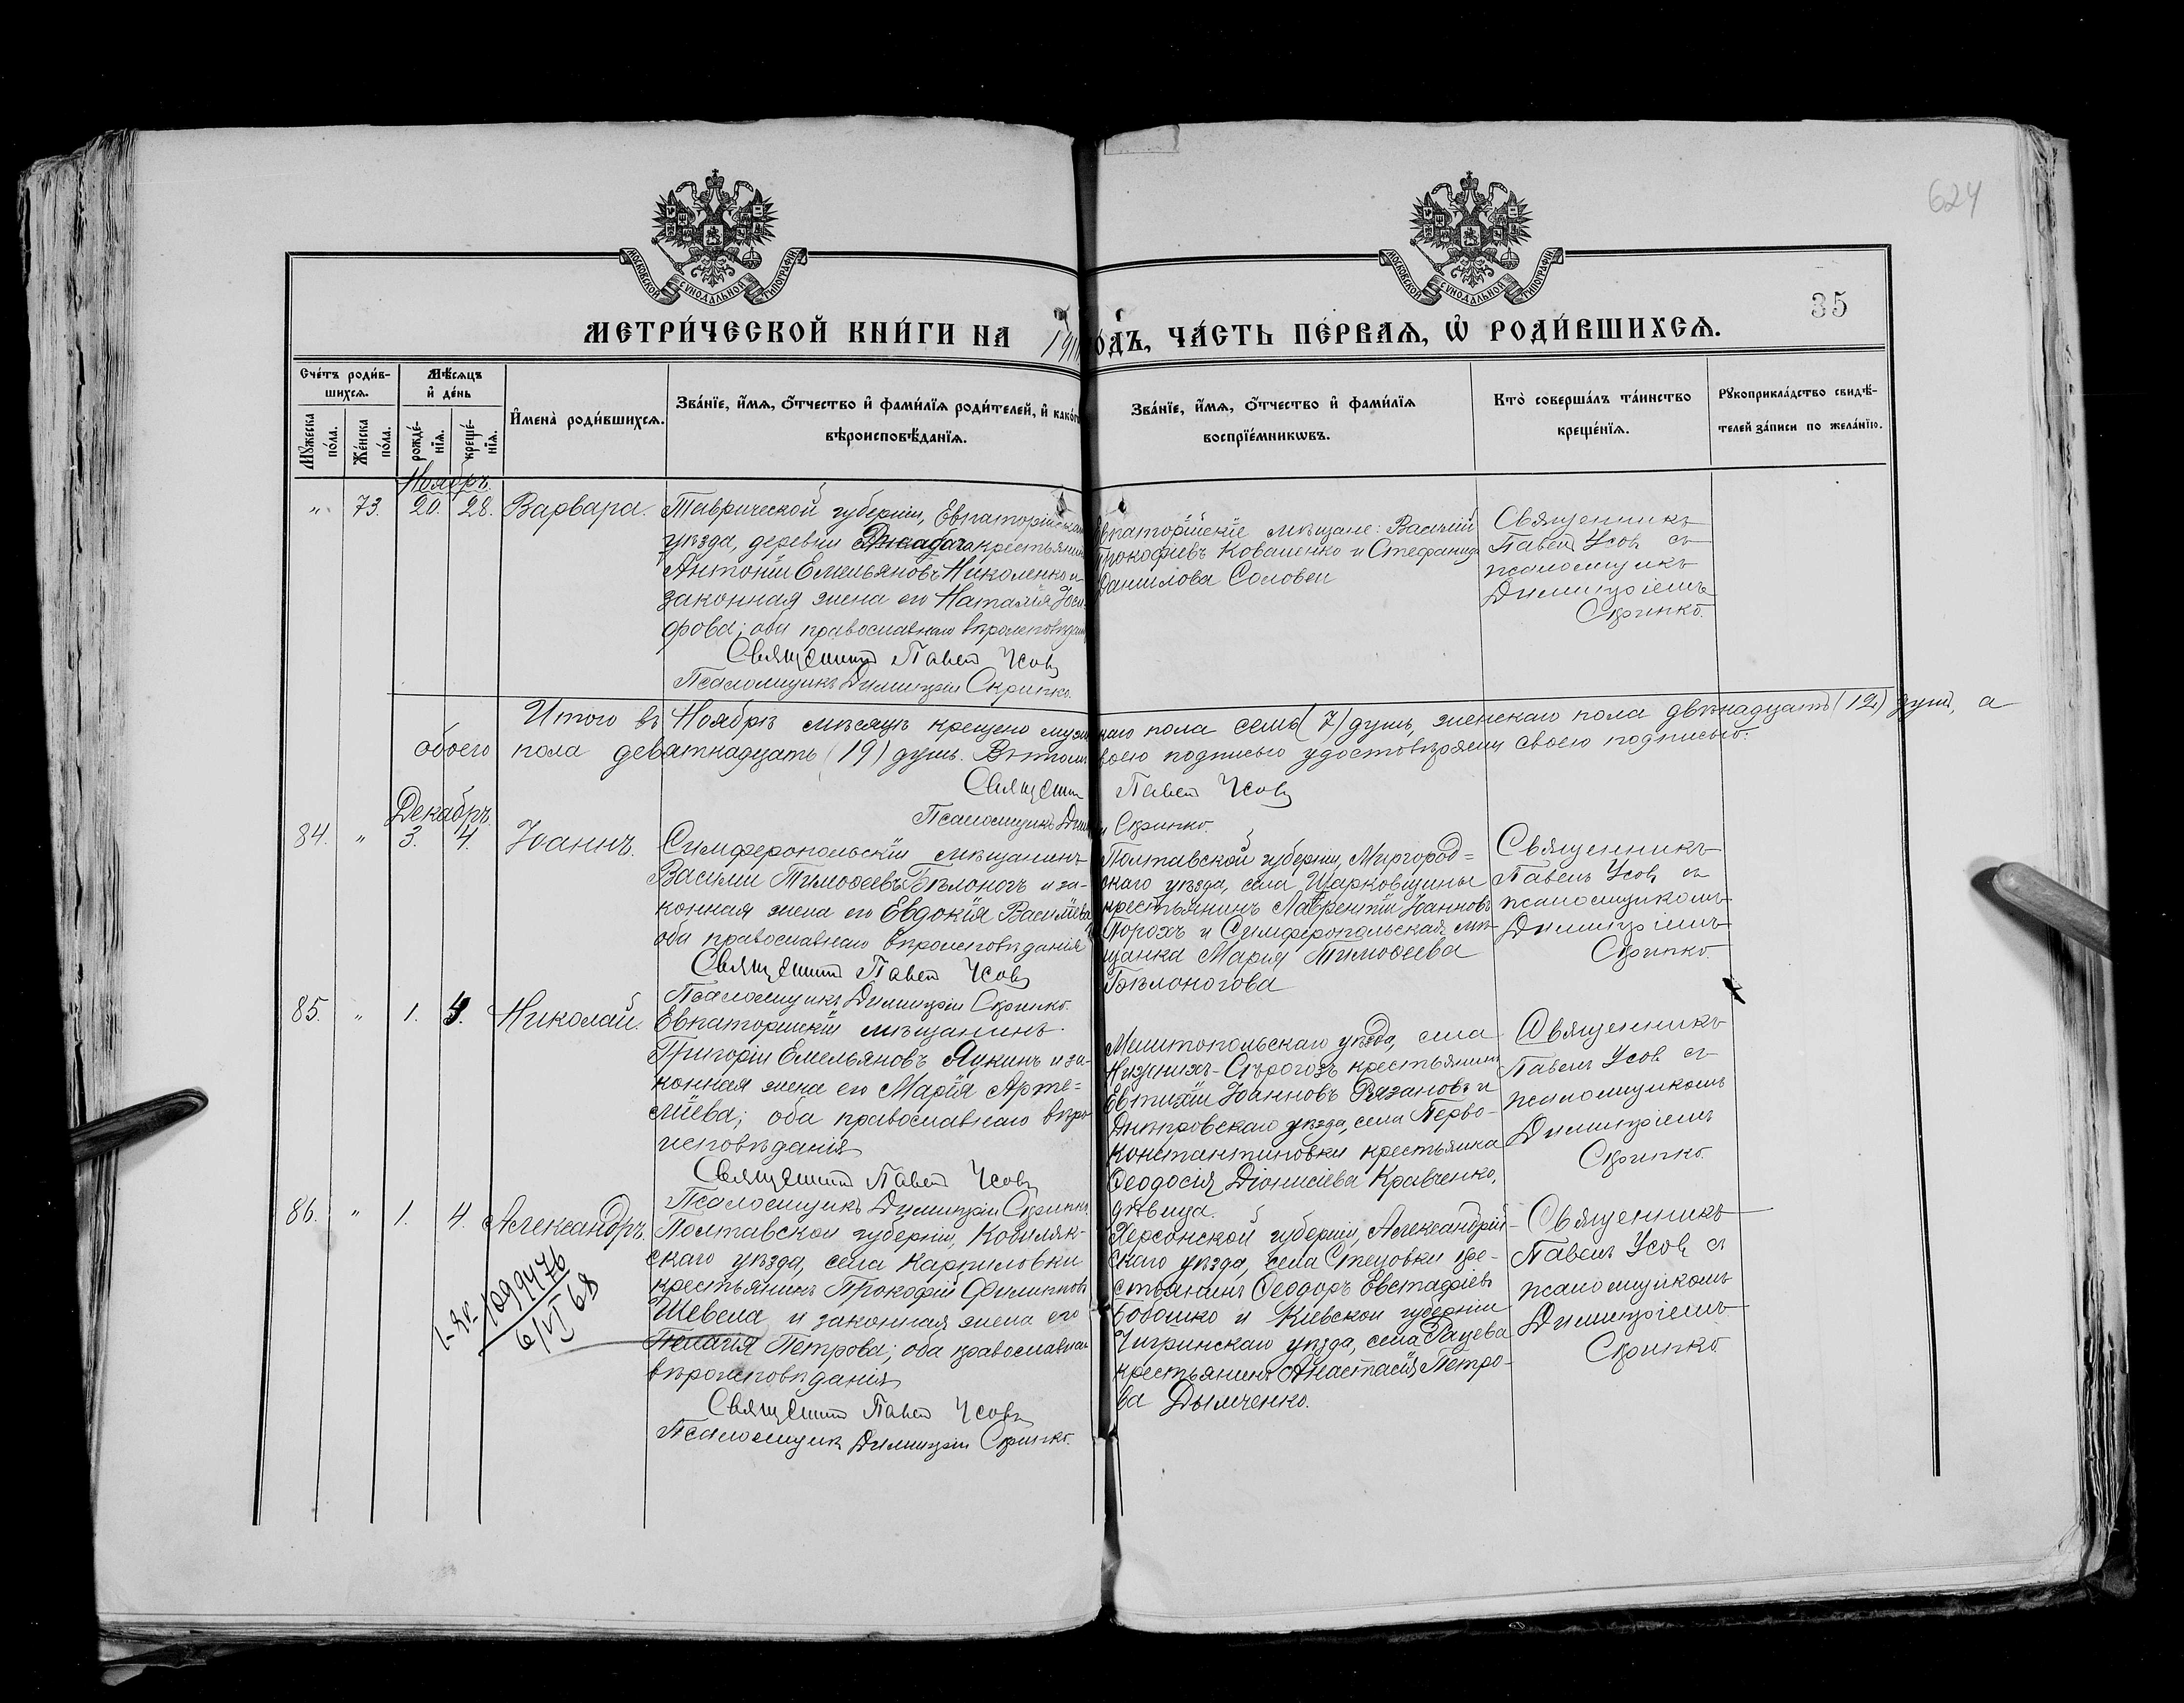 624
35
МОСКОВСКОЙ СѴНОДАЛЬНОЙ ТИПОГРАФІИ
МОСКОВСКОЙ СѴНОДАЛЬНОЙ ТИПОГРАФІИ
МЕТРИ́ЧЕСКОЙ КНИ́ГИ НА 191 ОДЪ, ЧА́СТЬ ПЕ́РВАЯ, Ѡ҆ РОДИ́ВШИХСЯ.
Сче́тъ роди́в-
шихся.
Мꙋжеска по́ла.
Же́нска по́ла.
Мѣ́сяцъ
и҆ де́нь
рожде́-
нїя.
креще́-
нїя.
И҆мена̀ роди́вшихся.
Зва́нїе, и҆́мя, ѻ҆́тчество и҆ фами́лїя роди́телей, и҆ како́го
вѣроисповѣ́данїя.
Зва́нїе, и҆́мя, ѻ҆́тчество и҆ фами́лїя
воспрїе́мникѡвъ.
Кто̀ соверша́лъ та́инство
креще́нїя.
Рꙋкоприкла́дство свидѣ́-
телей за́писи по жела́нїю.
Ноябрь.
" 73. 20. 28. Варвара.
Таврической губерніи, Евпаторійскаго
уѣзда, деревни крестьянинъ
Антоній Емельяновъ Николенко и
законная жена его Наталія Іоси-
фова; оба православнаго вѣроисповѣданія
Священникъ Павелъ Усовъ
Псаломщикъ Димитрій Скрипко.
Евпаторійскіе мѣщане: Василій
Прокофіевъ Коваленко и Стефанида
Данилова Соловей
Священникъ
Павелъ Усовъ съ
псаломщикъ
Димитріемъ
Скрипко.
Итого въ Ноябрѣ мѣсяцѣ крещено мужскаго пола семь (7) душъ, женскаго пола двѣнадцать (12) душъ, а
обоего пола девятнадцать (19) душъ. Въ томъ своею подписью удостовѣряемъ своею подписью:
Священникъ Павелъ Усовъ
Псаломщикъ Димитрій Скрипко.
Декабрь.
84. " 3. 4. Іоаннъ.
Симферопольскій мѣщанинъ
Василій Тимоѳеевъ Бѣлоногъ и за-
конная жена его Евдокія Василіева
оба православнаго вѣроисповѣданія
Священникъ Павелъ Усовъ
Псаломщикъ Димитрій Скрипко.
Полтавской губерніи, Миргород=
скаго уѣзда, села Шарковщины
крестьянинъ Лаврентій Іоанновъ
Порохъ и Симферопольская мѣ-
щанка Марія Тимоѳеева
Бѣлоногова
Священникъ
Павелъ Усовъ съ
псаломщикомъ
Димитріемъ
Скрипко.
85. " 1. 4. Николай.
Евпаторійскій мѣщанинъ
Григорій Емельяновъ Якинъ и за-
конная жена его Марія Арте=
міева; оба православнаго вѣро-
исповѣданія
Священникъ Павелъ Усовъ
Псаломщикъ Димитрій Скрипко
Мелитопольскаго уѣзда, села
Нижнихъ-Сѣрогозъ крестьянинъ
Евтихій Іоанновъ Рязановъ и
Днѣпровскаго уѣзда, села Перво-
Константиновки крестьянка
Ѳеодосія Діонисіева Кравченко,
дѣвица.
Священникъ
Павелъ Усовъ съ
псаломщикомъ
Димитріемъ
Скрипко.
86. " 1. 4. Александръ.
1-ЯР 1099476
6/VI 68
Полтавской губерніи, Кобеляк-
скаго уѣзда, села Карпиловки
крестьянинъ Прокофій Филипповъ
Шевела и законная жена его
Пелагія Петрова; оба православнаго
вѣроисповѣданія
Священникъ Павелъ Усовъ
Псаломщикъ Димитрій Скрипко.
Херсонской губерніи, Александрій-
скаго уѣзда, села Стецовки кре-
стьянинъ Ѳеодоръ Евстафіевъ
Бобошко и Кіевской губерніи
Чигринскаго уѣзда, села Рацева
крестьянинъ Анастасія Петро-
ва Дымченко.
Священникъ
Павелъ Усовъ съ
псаломщикомъ
Димитріемъ
Скрипко